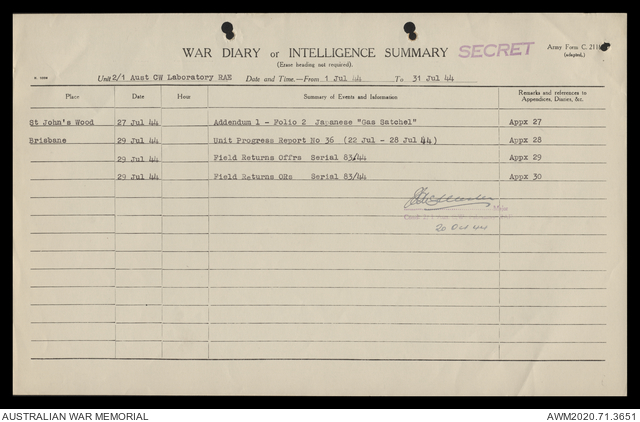 WAR DIARY or INTELLIGENCE SUMMARY SECRET Army Form C. 2118
(Erase heading not required). (adapted.)
Unit 2/1 Aust CW Laboratory RAE Date and Time.—From 1 Jul 44 To 31 Jul 44
Place Date Hour Summary of Events and Information Remarks and references to Appendices, Diaries, &c.
St John's Wood 27 Jul 44 Addendum 1 - Folio 2 Japanese "Gas Satchel" Appx 27
Brisbane 29 Jul 44 Unit Progress Report No 36 (22 Jul - 28 Jul 44) Appx 28
29 Jul 44 Field Returns Offrs Serial 83/44 Appx 29
29 Jul 44 Field Returns ORs Serial 83/44 Appx 30
Major
20 Oct 44
AUSTRALIAN WAR MEMORIAL AWM2020.71.3651